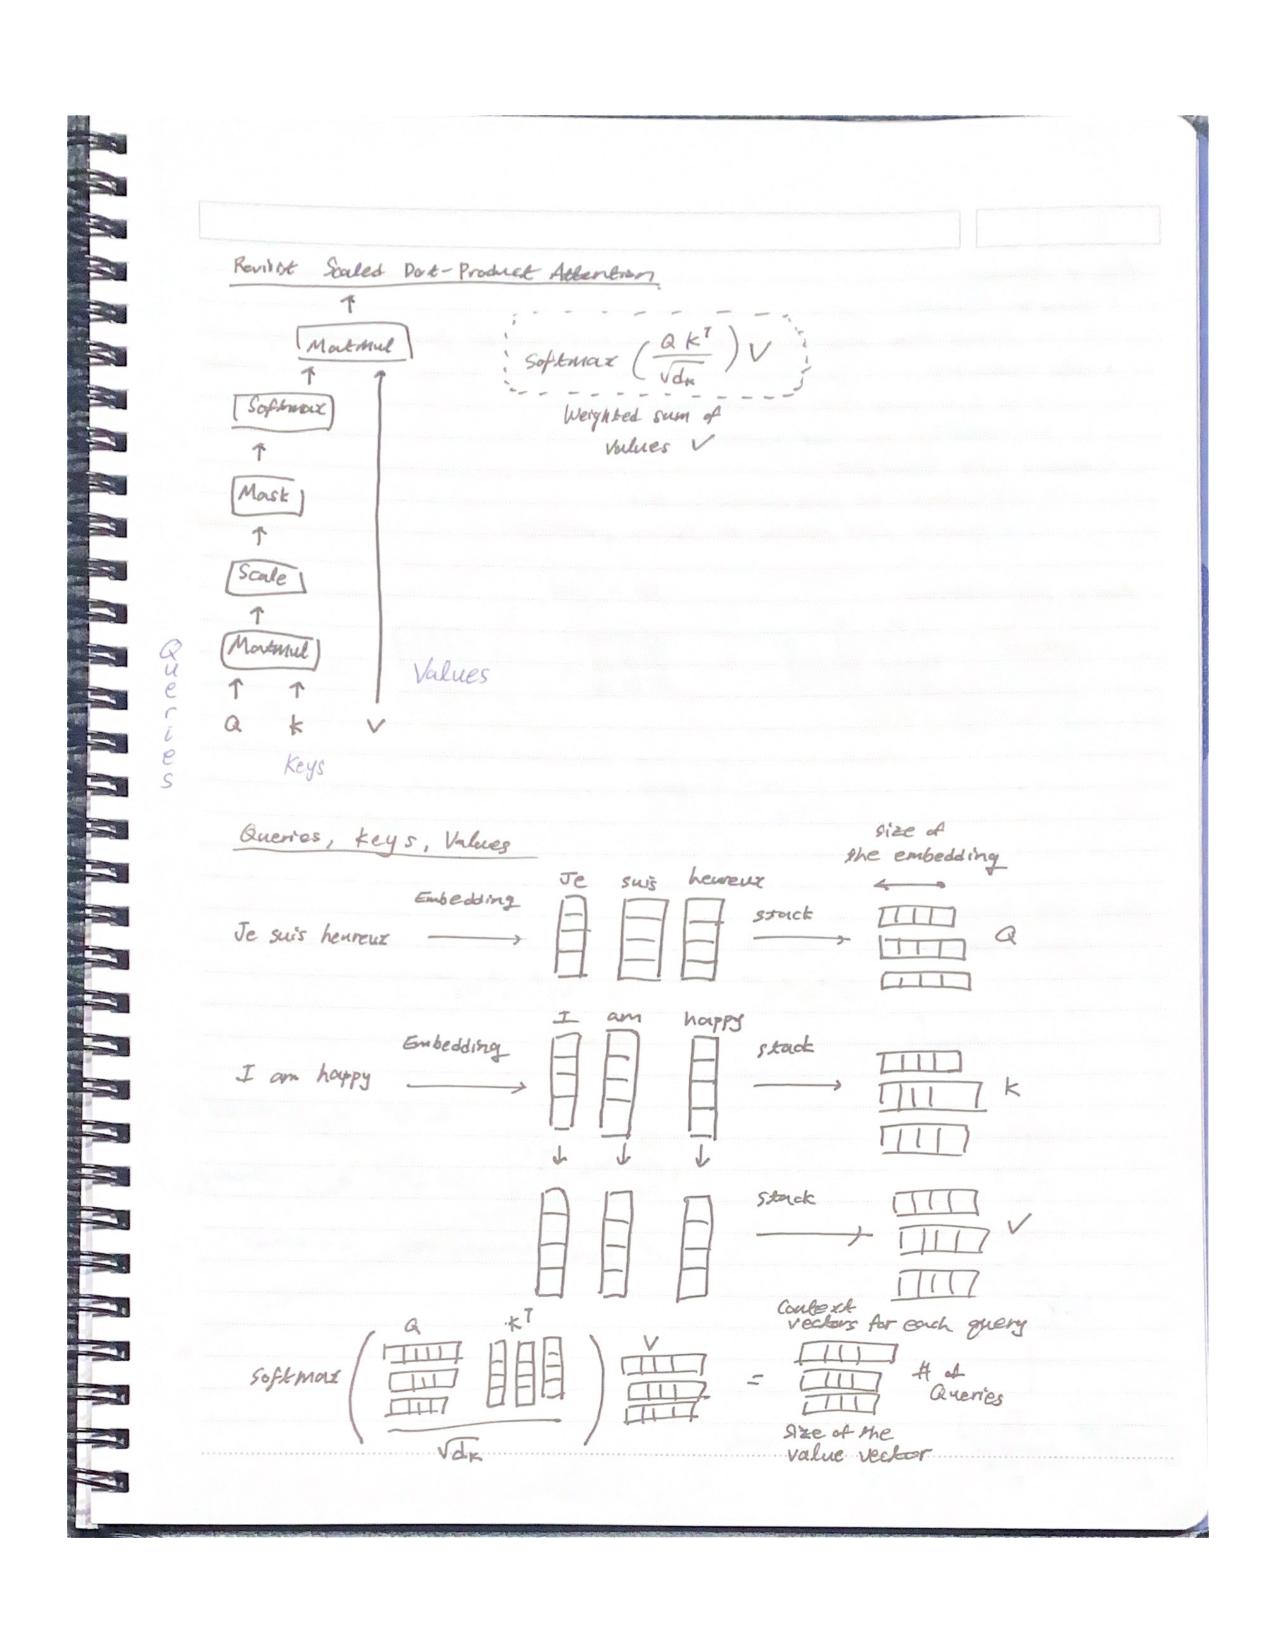 Revisit Scaled Dot-Product Attention
MatMul
Softmax
Mask
Scale
MatMul
Q K V
Queries
Keys
Values
Softmax (Q K^T / √dk) V
Weighted sum of
values V
Queries, Keys, Values
size of
the embedding
Je suis heureux
Embedding
Je suis heureux
stack
Q
I am happy
Embedding
I am happy
stack
K
stack
V
Softmax ( Q K^T / √dk ) V =
Context
vectors for each query
# of
Queries
Size of the
value vector